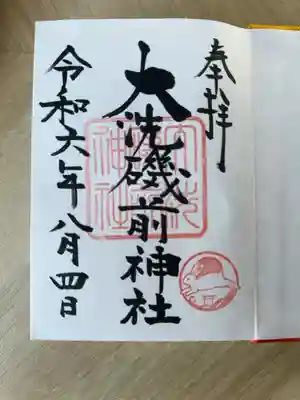 奉拝
大洗磯前神社
令和六年八月四日